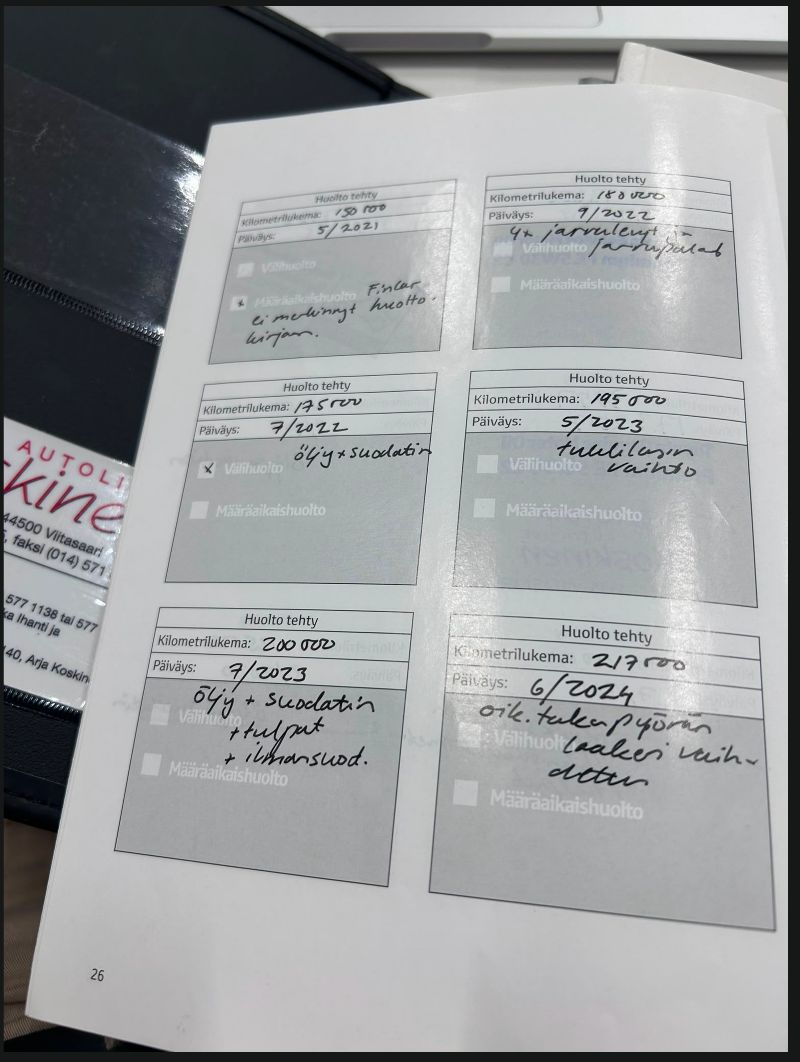 Huolto tehty
Kilometrilukema: 150 000
Päiväys: 5/2021
Välihuolto
x Määräaikaishuolto Finlar
ei merkinnyt huolto-
kirjaan.
Huolto tehty
Kilometrilukema: 180 000
Päiväys: 9/2022
4x jarrulevyt ja
Välihuolto jarrupalat
Määräaikaishuolto
Huolto tehty
Kilometrilukema: 175 000
Päiväys: 7/2022
öljy + suodatin
x Välihuolto
Määräaikaishuolto
Huolto tehty
Kilometrilukema: 195 000
Päiväys: 5/2023
tuulilasin
Välihuolto vaihto
Määräaikaishuolto
Huolto tehty
Kilometrilukema: 200 000
Päiväys: 7/2023
öljy + suodatin
Välihuolto + tulpat
+ ilmansuod.
Määräaikaishuolto
Huolto tehty
Kilometrilukema: 217 000
Päiväys: 6/2024
oik. takapyörän
Välihuolto laakeri vaih-
dettu
Määräaikaishuolto
26
AUTOLI
skine
44500 Viitasaari
5, faksi (014) 571
577 1138 tai 577
ka Ihanti ja
140, Arja Koskin